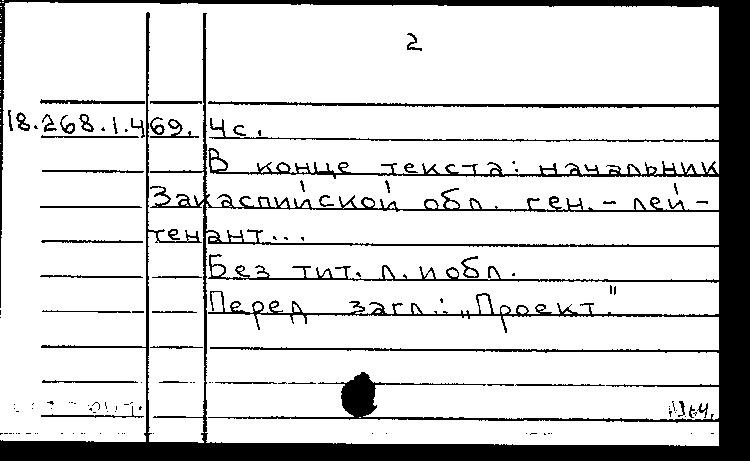 2
18.268.1.469. 4с.
В конце текста: начальник
Закаспийской обл. ген.-лей-
тенант...
Без тит. л. и обл.
Перед загл.: „Проект."